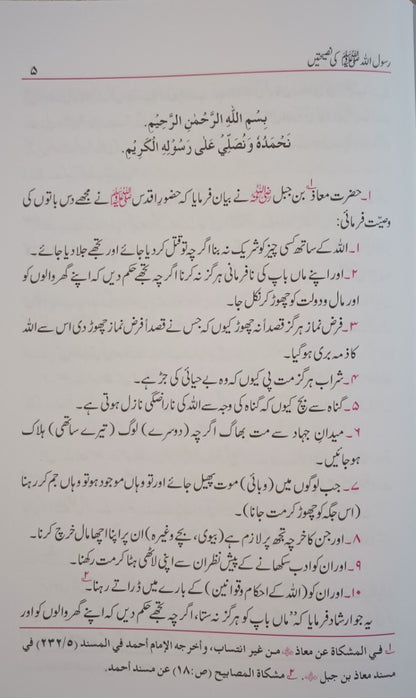 رسول اللہ ﷺ کی نصیحتیں
۵
بِسْمِ اللهِ الرَّحْمٰنِ الرَّحِيْمِ.
نَحْمَدُهٗ وَنُصَلِّيْ عَلٰى رَسُوْلِهِ الْكَرِيْمِ.
۱۔ حضرت معاذ۱؎ بن جبل رضی اللہ عنہ نے بیان فرمایا کہ حضورِ اقدس ﷺ نے مجھے دس باتوں کی
وصیّت فرمائی:
۱۔ اللہ کے ساتھ کسی چیز کو شریک نہ بنا اگرچہ تو قتل کر دیا جائے اور تجھے جلا دیا جائے۔
۲۔ اور اپنے ماں باپ کی نافرمانی ہرگز نہ کرنا اگرچہ تجھے حکم دیں کہ اپنے گھر والوں کو
اور مال و دولت کو چھوڑ کر نکل جا۔
۳۔ فرض نماز ہرگز قصداً نہ چھوڑ کیوں کہ جس نے قصداً فرض نماز چھوڑ دی اس سے اللہ
کا ذمہ بری ہو گیا۔
۴۔ شراب ہرگز مت پی کیوں کہ وہ بے حیائی کی جڑ ہے۔
۵۔ گناہ سے بچ کیوں کہ گناہ کی وجہ سے اللہ کی ناراضگی نازل ہوتی ہے۔
۶۔ میدانِ جہاد سے مت بھاگ اگرچہ (دوسرے) لوگ (تیرے ساتھی) ہلاک
ہو جائیں۔
۷۔ جب لوگوں میں (وبائی) موت پھیل جائے اور تو وہاں موجود ہو تو وہاں جم کر رہنا
(اس جگہ کو چھوڑ کر مت جانا)۔
۸۔ اور جن کا خرچہ تجھ پر لازم ہے (بیوی، بچے وغیرہ) ان پر اپنا اچھا مال خرچ کرنا۔
۹۔ اور ان کو ادب سکھانے کے پیش نظر ان سے اپنی لاٹھی ہٹا کر مت رکھنا۔
۱۰۔ اور ان کو (اللہ کے احکام و قوانین) کے بارے میں ڈراتے رہنا۔۲؎
یہ جو ارشاد فرمایا کہ ”ماں باپ کو ہرگز نہ ستا، اگرچہ تجھے حکم دیں کہ اپنے گھر والوں کو اور
۱؎ في المشكاة عن معاذ رضی اللہ عنہ من غير انتساب، وأخرجه الإمام أحمد في المسند (۲۳۲/۵) في
مسند معاذ بن جبل رضی اللہ عنہ. ۲؎ مشكاة المصابيح (ص:۱۸) عن مسند أحمد.